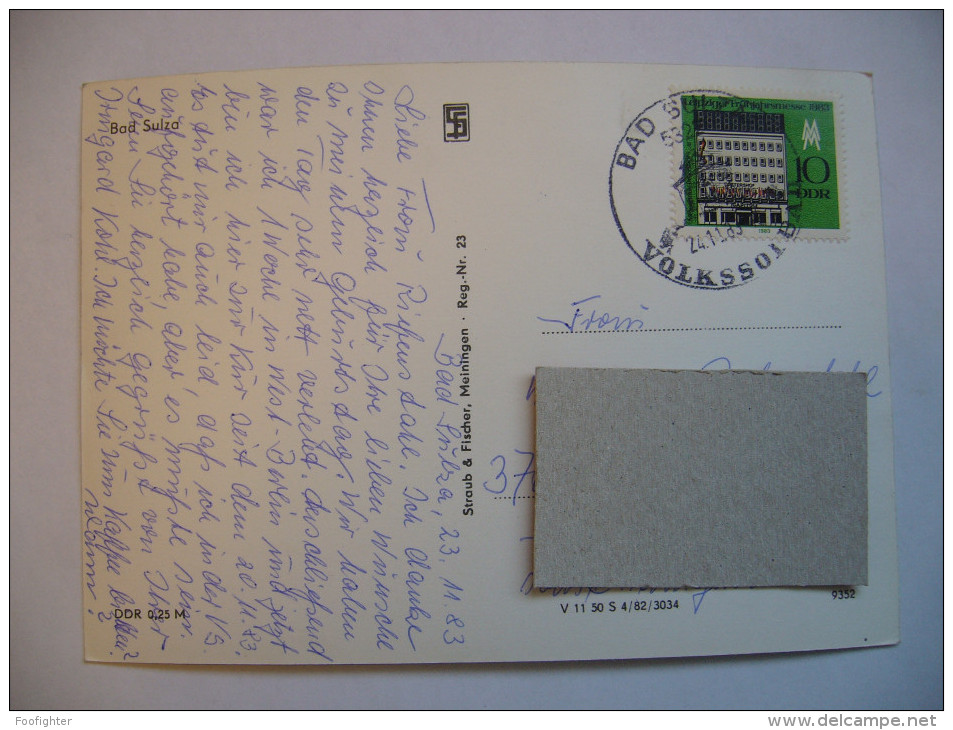 Bad Sulza, 23.11.83
Liebe Frau Riefenstahl. Ich danke
Ihnen herzlich für Ihre lieben Wünsche
zu meinem Geburtstag. Wir haben
den Tag sehr nett verlebt. Anschließend
war ich 1 Woche in West-Berlin und jetzt
bin ich hier zur Kur seit dem 20.11.83.
Es tut mir auch leid, daß ich in der VS.
aufgehört habe, aber es mußte sein.
Seien Sie herzlich gegrüßt von Ihrer
Irmgard Kohl. Ich möchte Sie zum Kaffee bitten?
Wann?
Bad Sulza
DDR 0,25 M
Straub & Fischer, Meiningen · Reg.-Nr. 23
V 11 50 S 4/82/3034
9352
Leipziger Frühjahrsmesse 1983
MM
10
DDR
1983
BAD SU
532
24.11.83
VOLKSSOLBA
Frau
37
Foofighter
www.delcampe.net